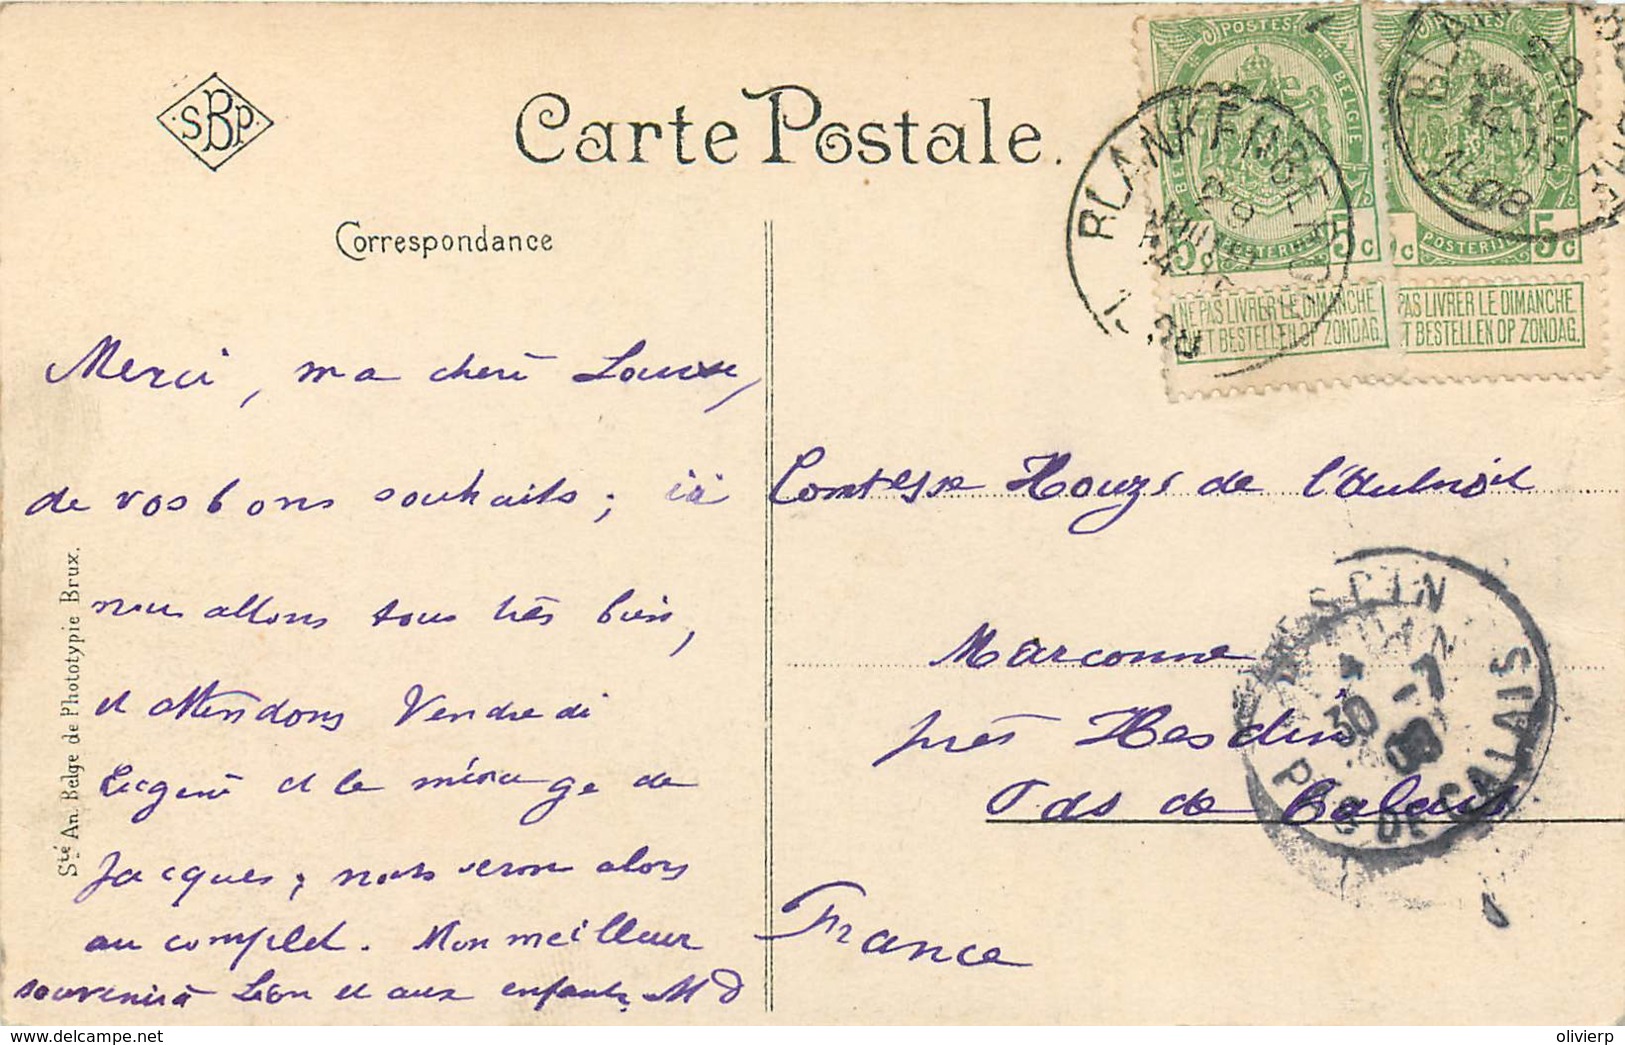 SBP
Carte Postale.
Correspondance
Merci, ma chère Louise,
de vos bons souhaits ; ici
nous allons tous très bien,
et attendons Vendredi
Eugène et le ménage de
Jacques ; nous serons alors
au complet. Mon meilleur
souvenir à Léon et aux enfants, M D
Sté An. Belge de Phototypie Brux.
POSTES
BELGIQUE BELGIE
POSTERIJEN
5c 5c
NE PAS LIVRER LE DIMANCHE
NIET BESTELLEN OP ZONDAG.
POSTES
BELGIE
POSTERIJEN
c 5c
PAS LIVRER LE DIMANCHE
T BESTELLEN OP ZONDAG.
BLANKENBERGHE
29
1908
Comtesse Houzé de l'Aulnoit
Marconne
près Hesdin
Pas de Calais
France
HESDIN
30 -7
08
PAS DE CALAIS
delcampe.net
olivierp